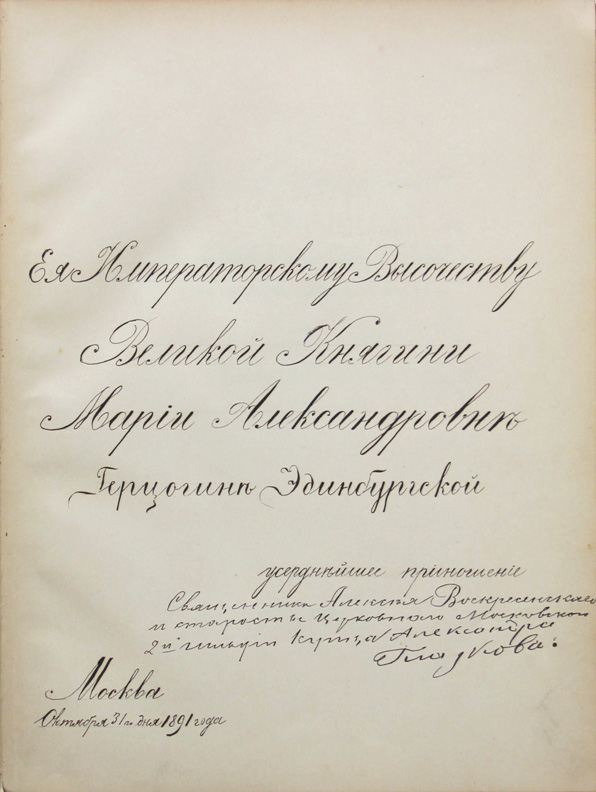 Ея Императорскому Высочеству
Великой Княгини
Маріи Александровнѣ
Герцогинѣ Эдинбургской
усерднѣйшее приношеніе
Священника Алексѣя Воскресенскаго
и старосты Церковнаго Московской
2й гильдіи купца Александра
Гладкова.
Москва
Октября 31го дня 1891 года